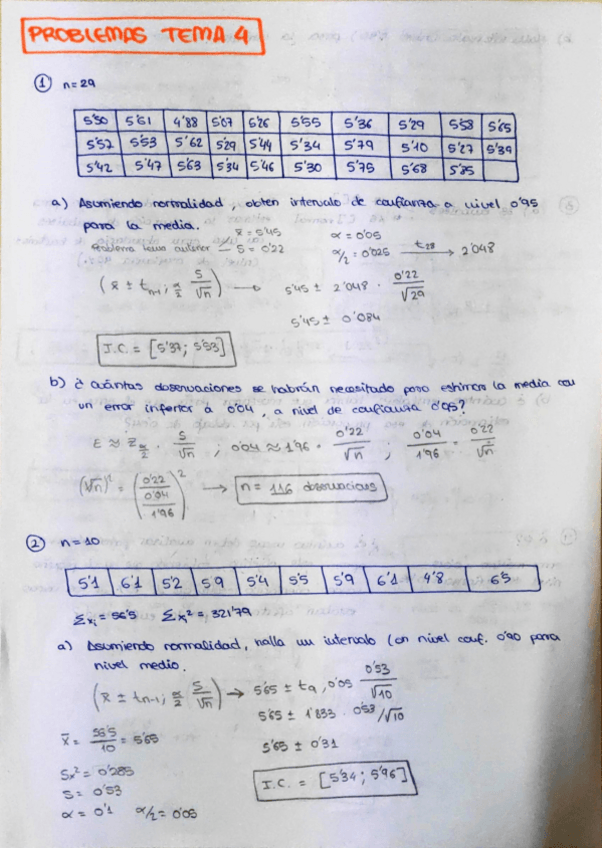 PROBLEMAS TEMA 4
① n=29
5'50 5'61 4'88 5'07 5'26 5'55 5'36 5'29 5'58 5'65
5'57 5'53 5'62 5'29 5'44 5'34 5'79 5'10 5'27 5'39
5'42 5'47 5'63 5'34 5'46 5'30 5'75 5'68 5'85
a) Asumiendo normalidad, obten intervalo de confianza a nivel 0'95
para la media.
x̄ = 5'45 α = 0'05
Problema tema anterior — S = 0'22 α/2 = 0'025 t₂₈ → 2'048
(x̄ ± t n-1; α/2 S/√n) → 5'45 ± 2'048 · 0'22/√29
5'45 ± 0'084
I.C. = [5'37; 5'53]
b) ¿ cuántas observaciones se habrán necesitado para estimar la media con
un error inferior a 0'04, a nivel de confianza 0'95?
E ≈ Z α/2 · S/√n ; 0'04 ≈ 1'96 · 0'22/√n ; 0'04/1'96 = 0'22/√n
(√n)² = (0'22/(0'04/1'96))² → n = 116 observaciones
② n=10
5'1 6'1 5'2 5'9 5'4 5'5 5'9 6'1 4'8 6'5
Σxᵢ = 56'5 Σxᵢ² = 321'79
a) Asumiendo normalidad, halla un intervalo con nivel conf. 0'90 para
nivel medio.
(x̄ ± t n-1; α/2 S/√n) → 5'65 ± t₉, 0'05 0'53/√10
5'65 ± 1'833 · 0'53/√10
x̄ = 56'5/10 = 5'65
5'65 ± 0'31
Sx² = 0'285
S = 0'53
I.C. = [5'34; 5'96]
α = 0'1 α/2 = 0'05